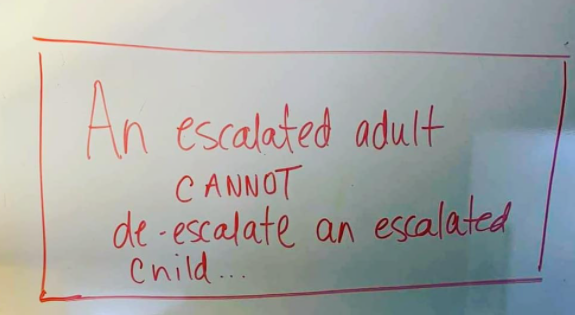 An escalated adult
CANNOT
de-escalate an escalated
child...